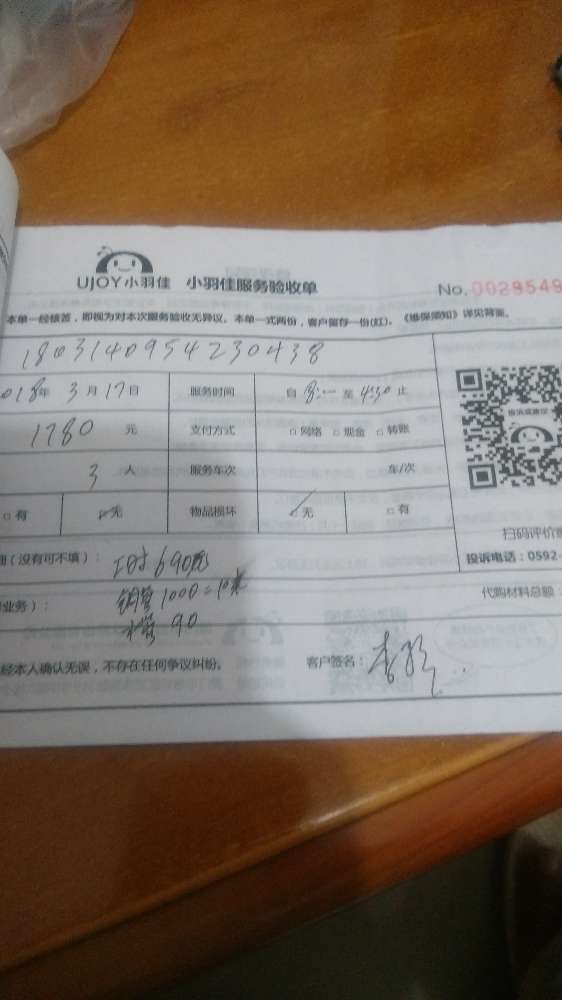 UJOY小羽佳 小羽佳服务验收单 No.0028549
本单一经核签，即视为对本次服务验收无异议。本单一式两份，客户留存一份(红)。《维保须知》详见背面。
1803140954230438
018年 3月17日 服务时间 自 8:00 至 4:30 止
1780 元 支付方式 □网络 □现金 □转账
3 人 服务车次 车/次
□有 □无 物品损坏 □无 □有
扫码评价
细(没有可不填)： 工时690元 投诉电话：0592-
业务)： 铜管1000=10米 代购材料总额：
水管 90
经本人确认无误，不存在任何争议纠纷。 客户签名：